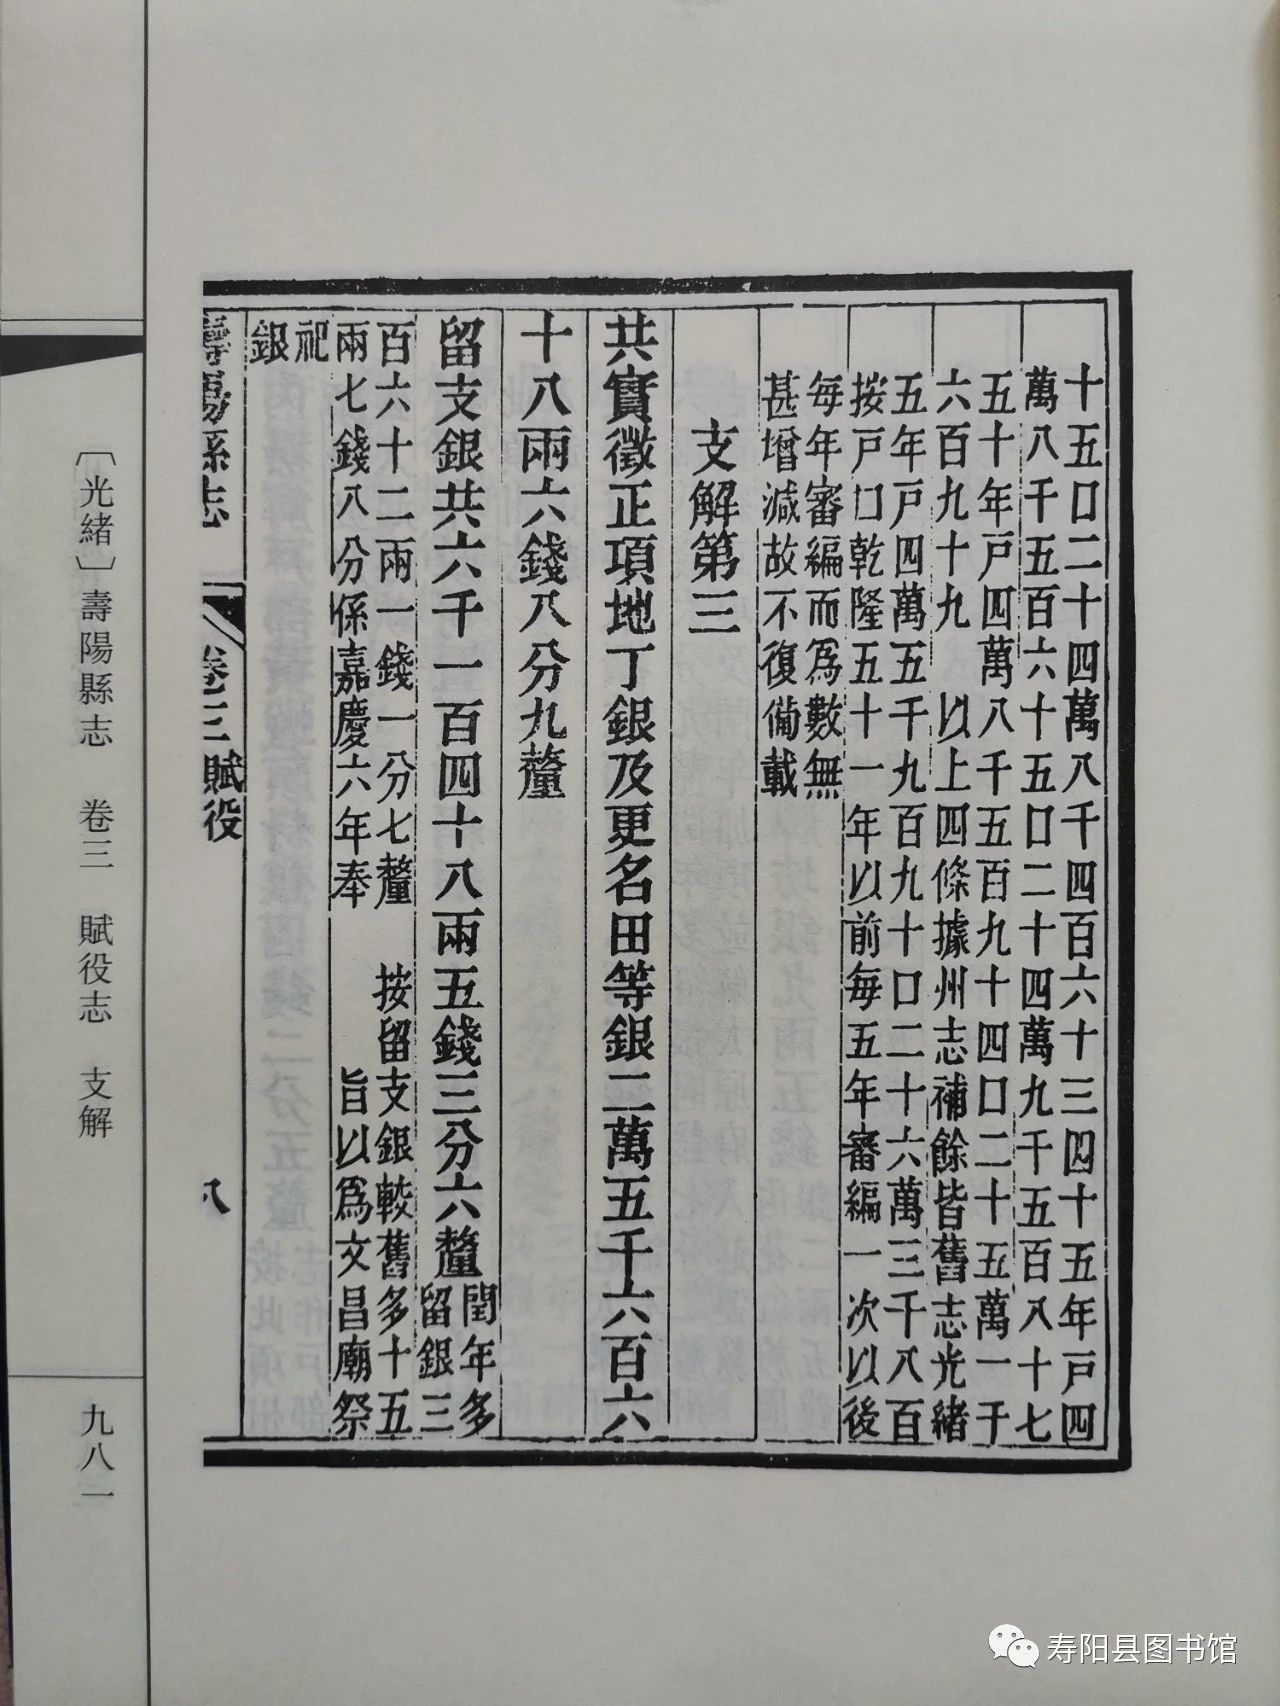 十五口二十四萬八千四百六十三四十五年戶四
萬八千五百六十五口二十四萬九千五百八十七
五十年戶四萬八千五百九十四口二十五萬一千
六百九十九　以上四條據州志補餘皆舊志光緒
五年戶四萬五千九百九十口二十六萬三千八百
按戶口乾隆五十一年以前每五年審編一次以後
每年審編而爲數無
甚增減故不復備載
支解第三
共實徵正項地丁銀及更名田等銀二萬五千六百六
十八兩六錢八分九釐
留支銀共六千一百四十八兩五錢三分六釐
閏年多
留銀三
百六十二兩一錢一分七釐　按留支銀較舊多十五
兩七錢八分係嘉慶六年奉　旨以爲文昌廟祭
祀
銀
壽陽縣志　卷三賦役　八
〔光緒〕壽陽縣志　卷三　賦役志　支解　九八一
寿阳县图书馆